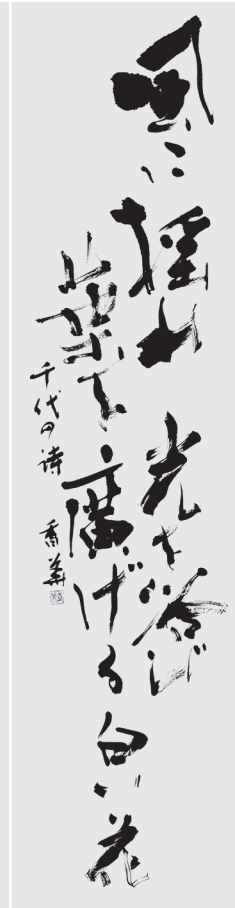 風に揺れ 光を浴び
葉を廣げる 白い花
千代の詩 香華